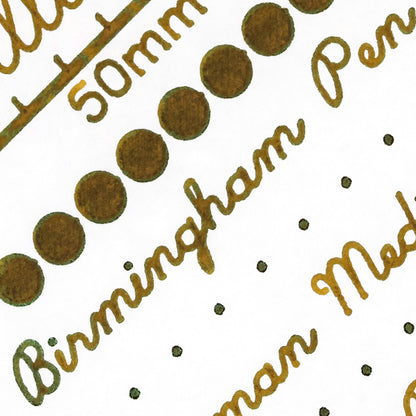 50mm
Birmingham Pen
Med
man